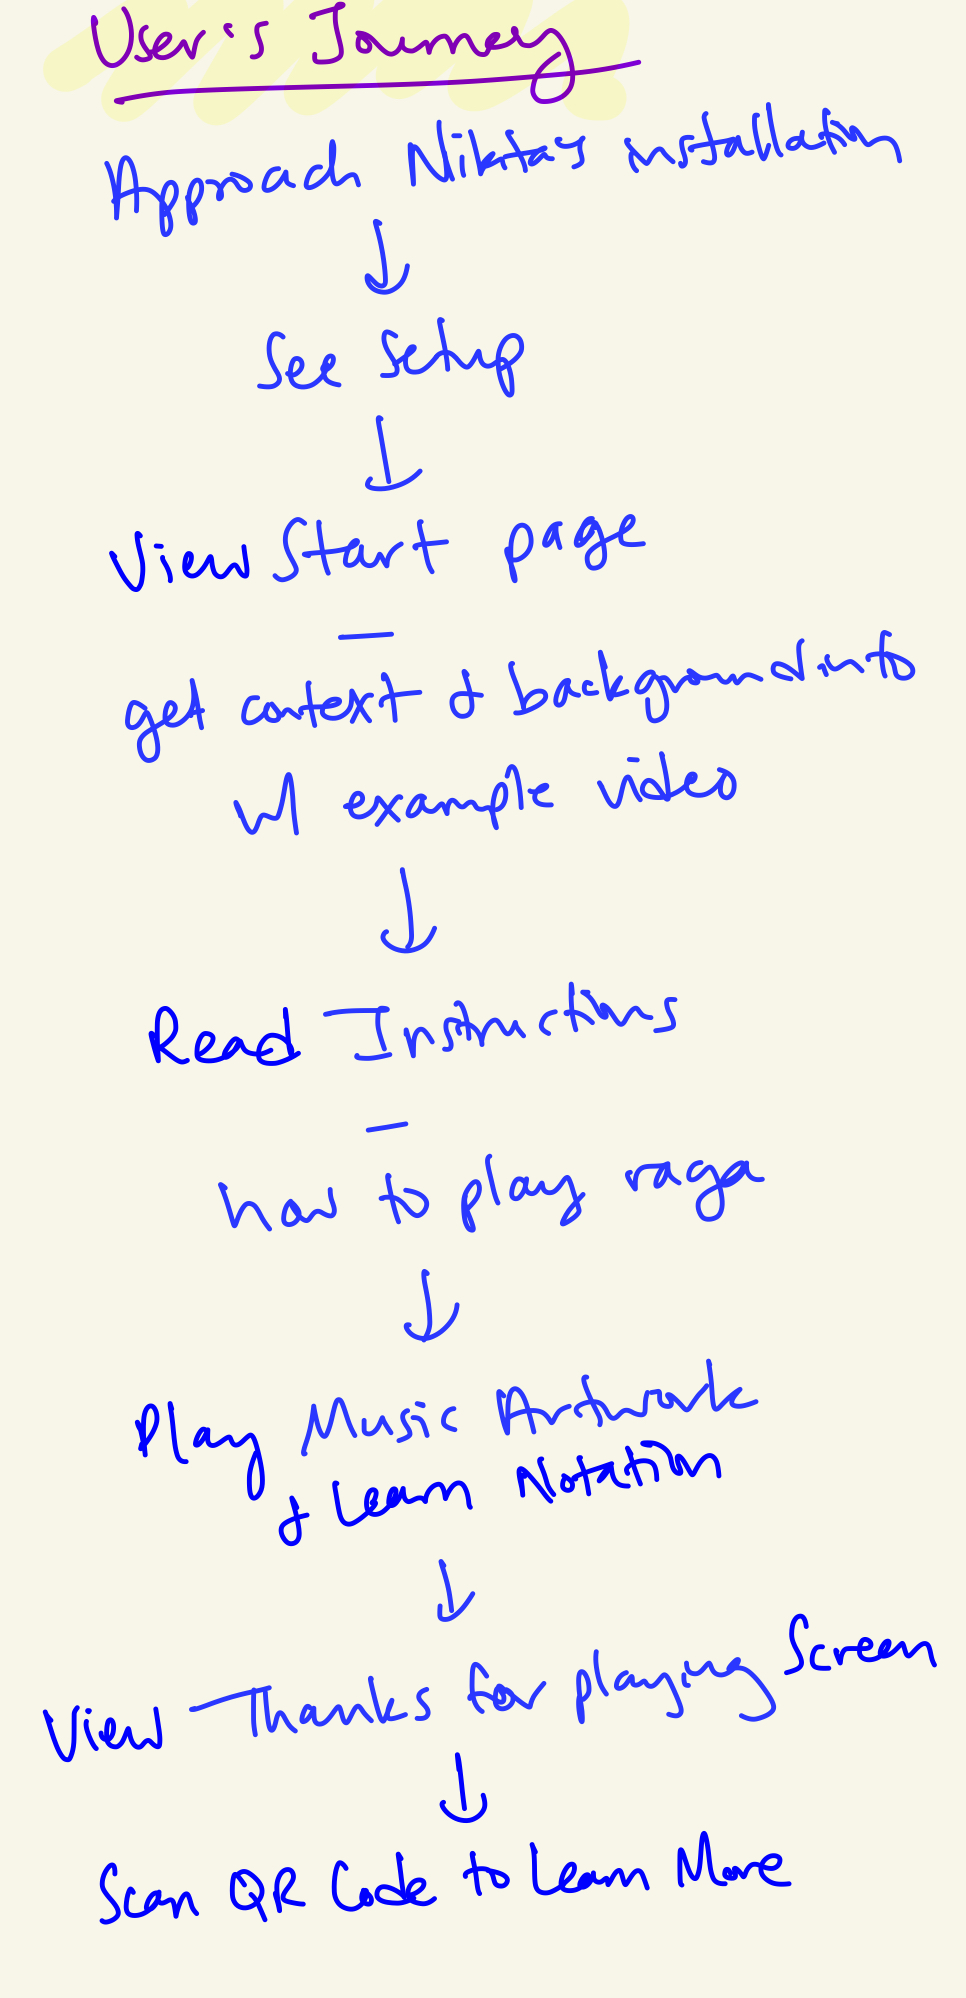 User's Journey
Approach Nikita's installation
See setup
View Start page
—
get context & background info
w/ example video
Read Instructions
—
how to play raga
Play Music Artwork
& Learn Notation
View Thanks for playing Screen
Scan QR Code to Learn More